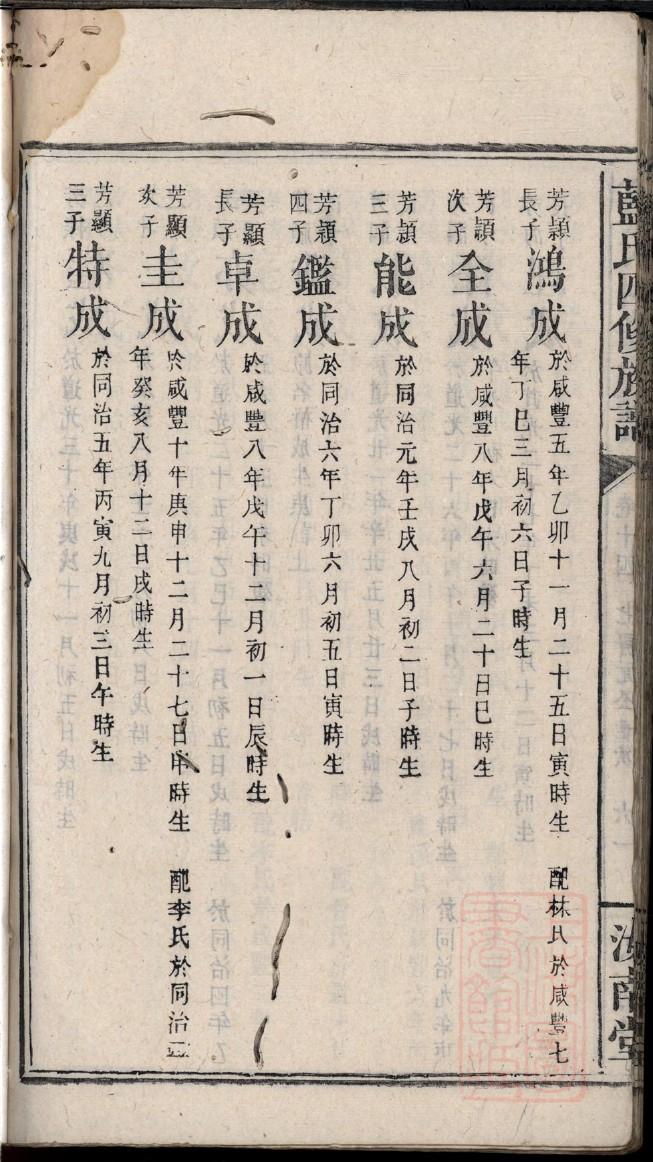 藍氏四修族譜
汝南堂
芳頴長子鴻成於咸豐五年乙卯十一月二十五日寅時生 配林氏於咸豐七
年丁巳三月初六日子時生
芳頴次子全成於咸豐八年戊午六月二十日巳時生
芳頴三子能成於同治元年壬戌八月初二日子時生
芳頴四子鑑成於同治六年丁卯六月初五日寅時生
芳顯長子卓成於咸豐八年戊午十二月初一日辰時生
芳顯次子圭成於咸豐十年庚申十二月二十七日申時生 配李氏於同治二
年癸亥八月十二日戌時生
芳顯三子特成於同治五年丙寅九月初三日午時生